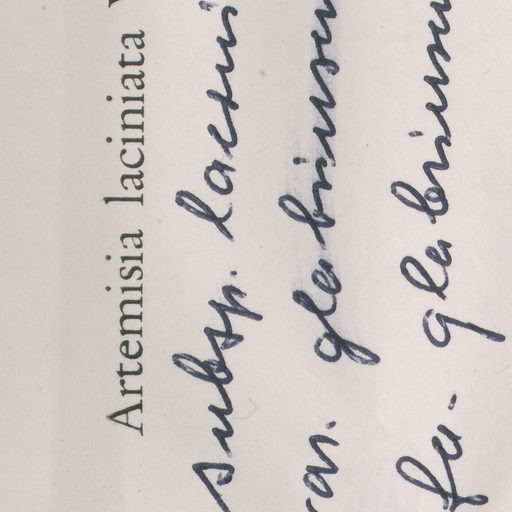 Artemisia laciniata
subsp. lacini
var. glabriuscu
fa. glabriuscu